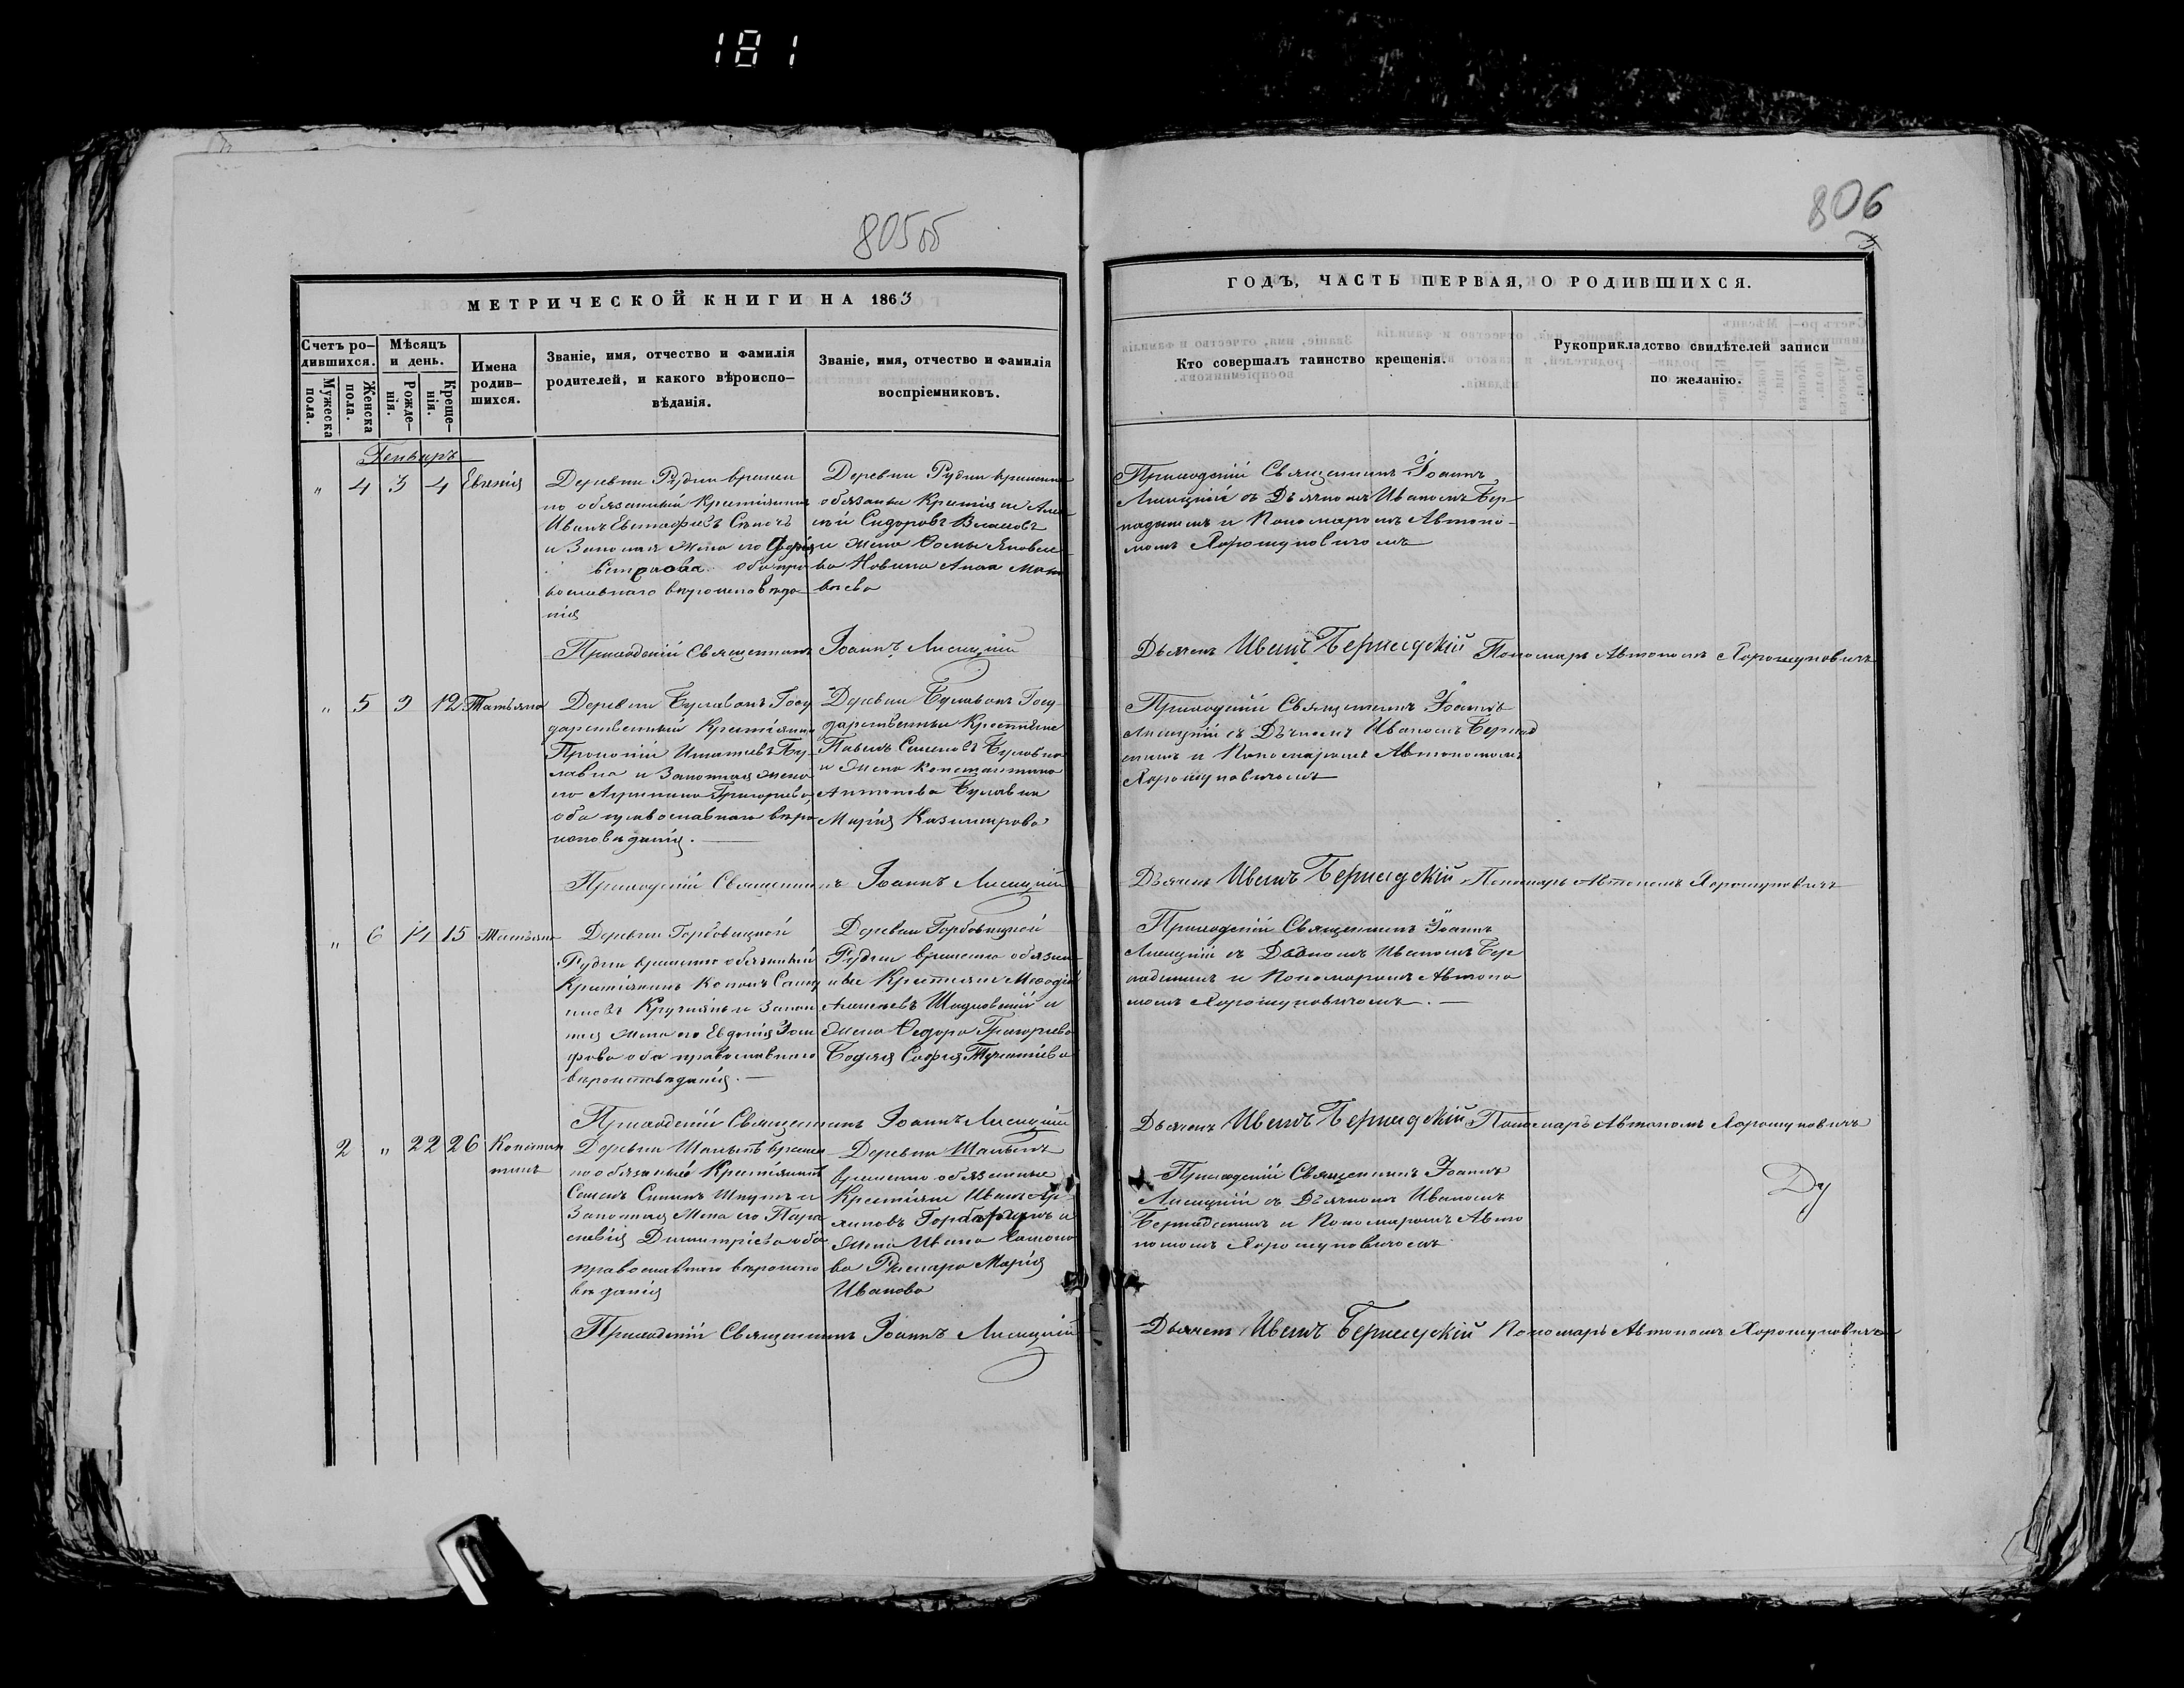 181
805 об
806
МЕТРИЧЕСКОЙ КНИГИ НА 1863
ГОДЪ, ЧАСТЬ ПЕРВАЯ, О РОДИВШИХСЯ.
Счетъ ро-
дившихся.
Мужеска
пола.
Женска
пола.
Мѣсяцъ
и день.
Рожде-
нія.
Креще-
нія.
Имена
родив-
шихся.
Званіе, имя, отчество и фамилія
родителей, и какого вѣроиспо-
вѣданія.
Званіе, имя, отчество и фамилія
воспріемниковъ.
Кто совершалъ таинство крещенія.
Рукоприкладство свидѣтелей записи
по желанію.
Генварь
" 4 3 4 Евгенія
Деревни Рудни времен
но обязанный Крестьянинъ
Иванъ Евстафіевъ
и Законная жена его
Петрова оба пра
вославнаго вѣроисповѣда
нія
Деревни Рудни временно
обязанные Крестьяне
Сидоровъ
и жена Ѳомы Яковле
ва Анна Мат
вѣева
Приходскій Священникъ Іоаннъ
Лисицкій съ Дьячкомъ Иваномъ Бер
надскимъ и Пономаремъ Автоно-
момъ Хорошуновичомъ
Приходскій Священникъ Іоаннъ Лисицкій
Дьячекъ Иванъ Бернадскій Пономарь Автономъ Хорошуновичъ
" 5 9 12 Татьяна
Деревни Буславокъ Госу
дарственный Крестьянинъ
Прокопій Игнатіевъ Бу
славка и Законная жена
его Агрипина Григорьева,
оба православнаго вѣро
исповѣданія.
Деревни Буславокъ Госу
дарственные Крестьяне
Павелъ Семеновъ Буславка
и Жена Константина
Антонова Буславки
Марія Казимирова
Приходскій Священникъ Іоаннъ
Лисицкій съ Дьячкомъ Иваномъ Бернад
скимъ и Пономаремъ Автономомъ
Хорошуновичомъ
Приходскій Священникъ Іоаннъ Лисицкій
Дьячекъ Иванъ Бернадскій Пономарь Автономъ Хорошуновичъ
" 6 14 15 Татьяна
Деревни Горбовицкой
Рудни временно обязанный
Крестьянинъ Кононъ
и Закон
ная жена его Евдокія
оба православнаго
вѣроисповѣданія.
Деревни Горбовицкой
Рудни временно обязан
ные Крестьяне Меѳодій
Алексѣевъ и
Жена Ѳедора Григорьева
Софія
Приходскій Священникъ Іоаннъ
Лисицкій съ Дьячкомъ Иваномъ Бер
надскимъ и Пономаремъ Автоно
момъ Хорошуновичомъ.
Приходскій Священникъ Іоаннъ Лисицкій
Дьячекъ Иванъ Бернадскій Пономарь Автономъ Хорошуновичъ
2 " 22 26 Констан
тинъ
Деревни времен
но обязанный Крестьянинъ
Семенъ и
Законная Жена его Пара
скевія Димитріева оба
православнаго вѣроиспо
вѣданія
Деревни
временно обязанные
Крестьяне Иванъ
и
Жена Ивана
Марія
Иванова
Приходскій Священникъ Іоаннъ
Лисицкій съ Дьячкомъ Иваномъ
Бернадскимъ и Пономаремъ Авто
номомъ Хорошуновичомъ
Приходскій Священникъ Іоаннъ Лисицкій
Дьячекъ Иванъ Бернадскій Пономарь Автономъ Хорошуновичъ